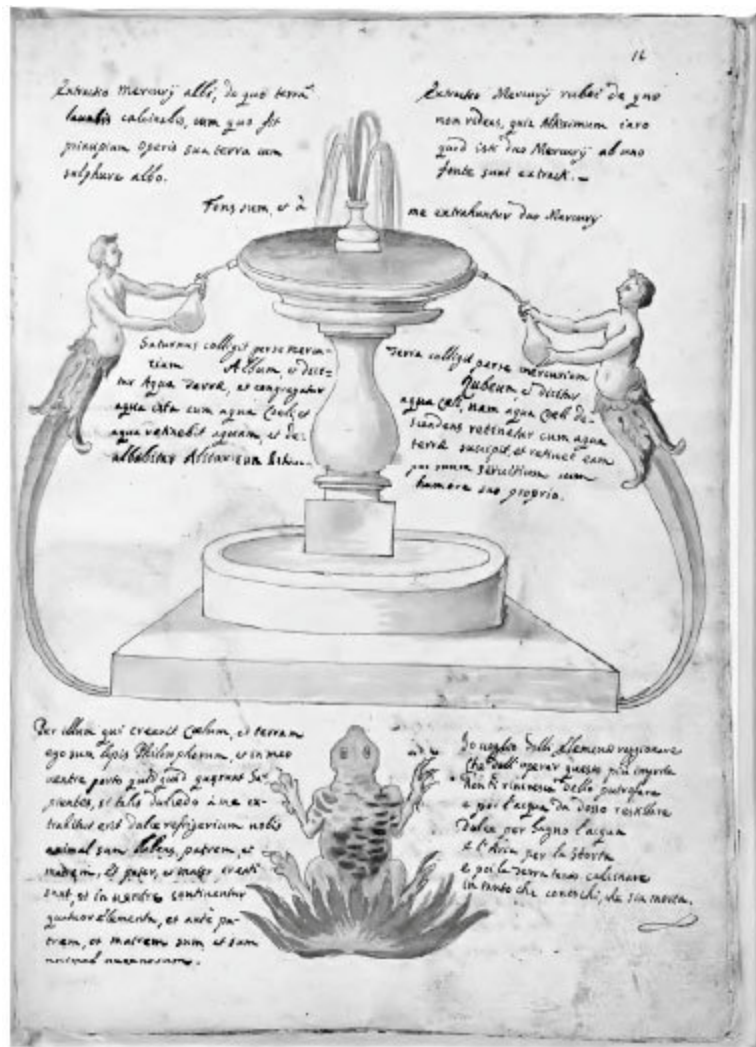 16
Extractio Mercurij albi, de quo terra
lavabis calcinabis, cum quo fit
principium operis sun terra cum
sulphure albo.
Extractio Mercurij rubei de quo
non rideas, quia Altissimum iuro
quod isti duo Mercurij ab uno
fonte sunt extracti.
Fons sum, et à me extrahuntur duo Mercurij
Saturnus colligit per se mercu-
rium Album, et dici-
tur Aqua Terræ, et congregatur
aqua ista cum aqua Cœli, et
aqua retinebit aquam, et de-
albabitur
Terra colligit per se mercurium
Rubeum, et dicitur
aqua Cœli, nam aqua Cœli de-
scendens retinetur cum aqua
terræ suscipit, et retinet eam
servitium cum
humore suo proprio.
Per illum qui creavit Cœlum, et terram
ego sum lapis Philosophorum, et in meo
ventre porto quid quid quærunt Sa-
pientes, si talis dulcedo à me ex-
trahitur erit dulce refrigerium nobis
animal sum habens, patrem, et
matrem, et pater, et mater creati
sunt, et in ventre continentur
quatuor elementa, et ante pa-
trem, et matrem sum, et sum
animal
Io voglio delli Elementi raggionare
Che dell'operar questo più importa
non ti rincresca dello putrefare
e poi l'acqua da dosso restillare
Dolce per bagno l'acqua
e l'Aria per la storta
e poi la terra calcinare
in tanto che conoschi, che sia morta.